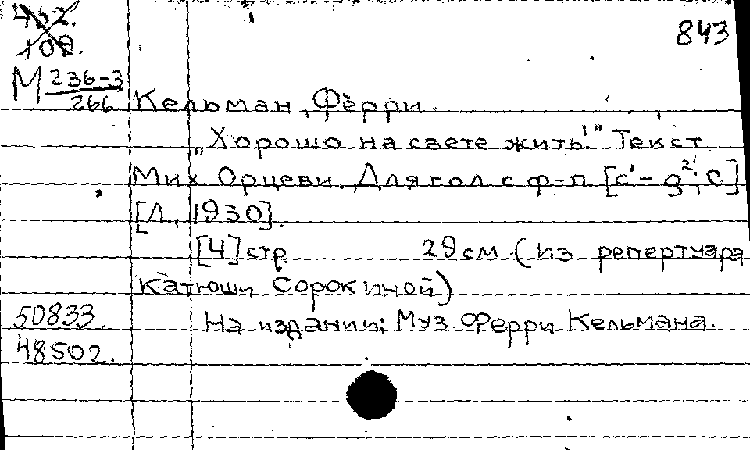 462.
108.
843
М 236-3
266
Кельман, Ферри.
„Хорошо на свете жить!" Текст
Мих. Орцеви. Для гол. с ф-п. [c'-g²; C]
[Л., 1930].
[4] стр. 29 см. (Из репертуара
Катюши Сорокиной)
50833.
На издании: Муз. Ферри Кельмана.
48502.